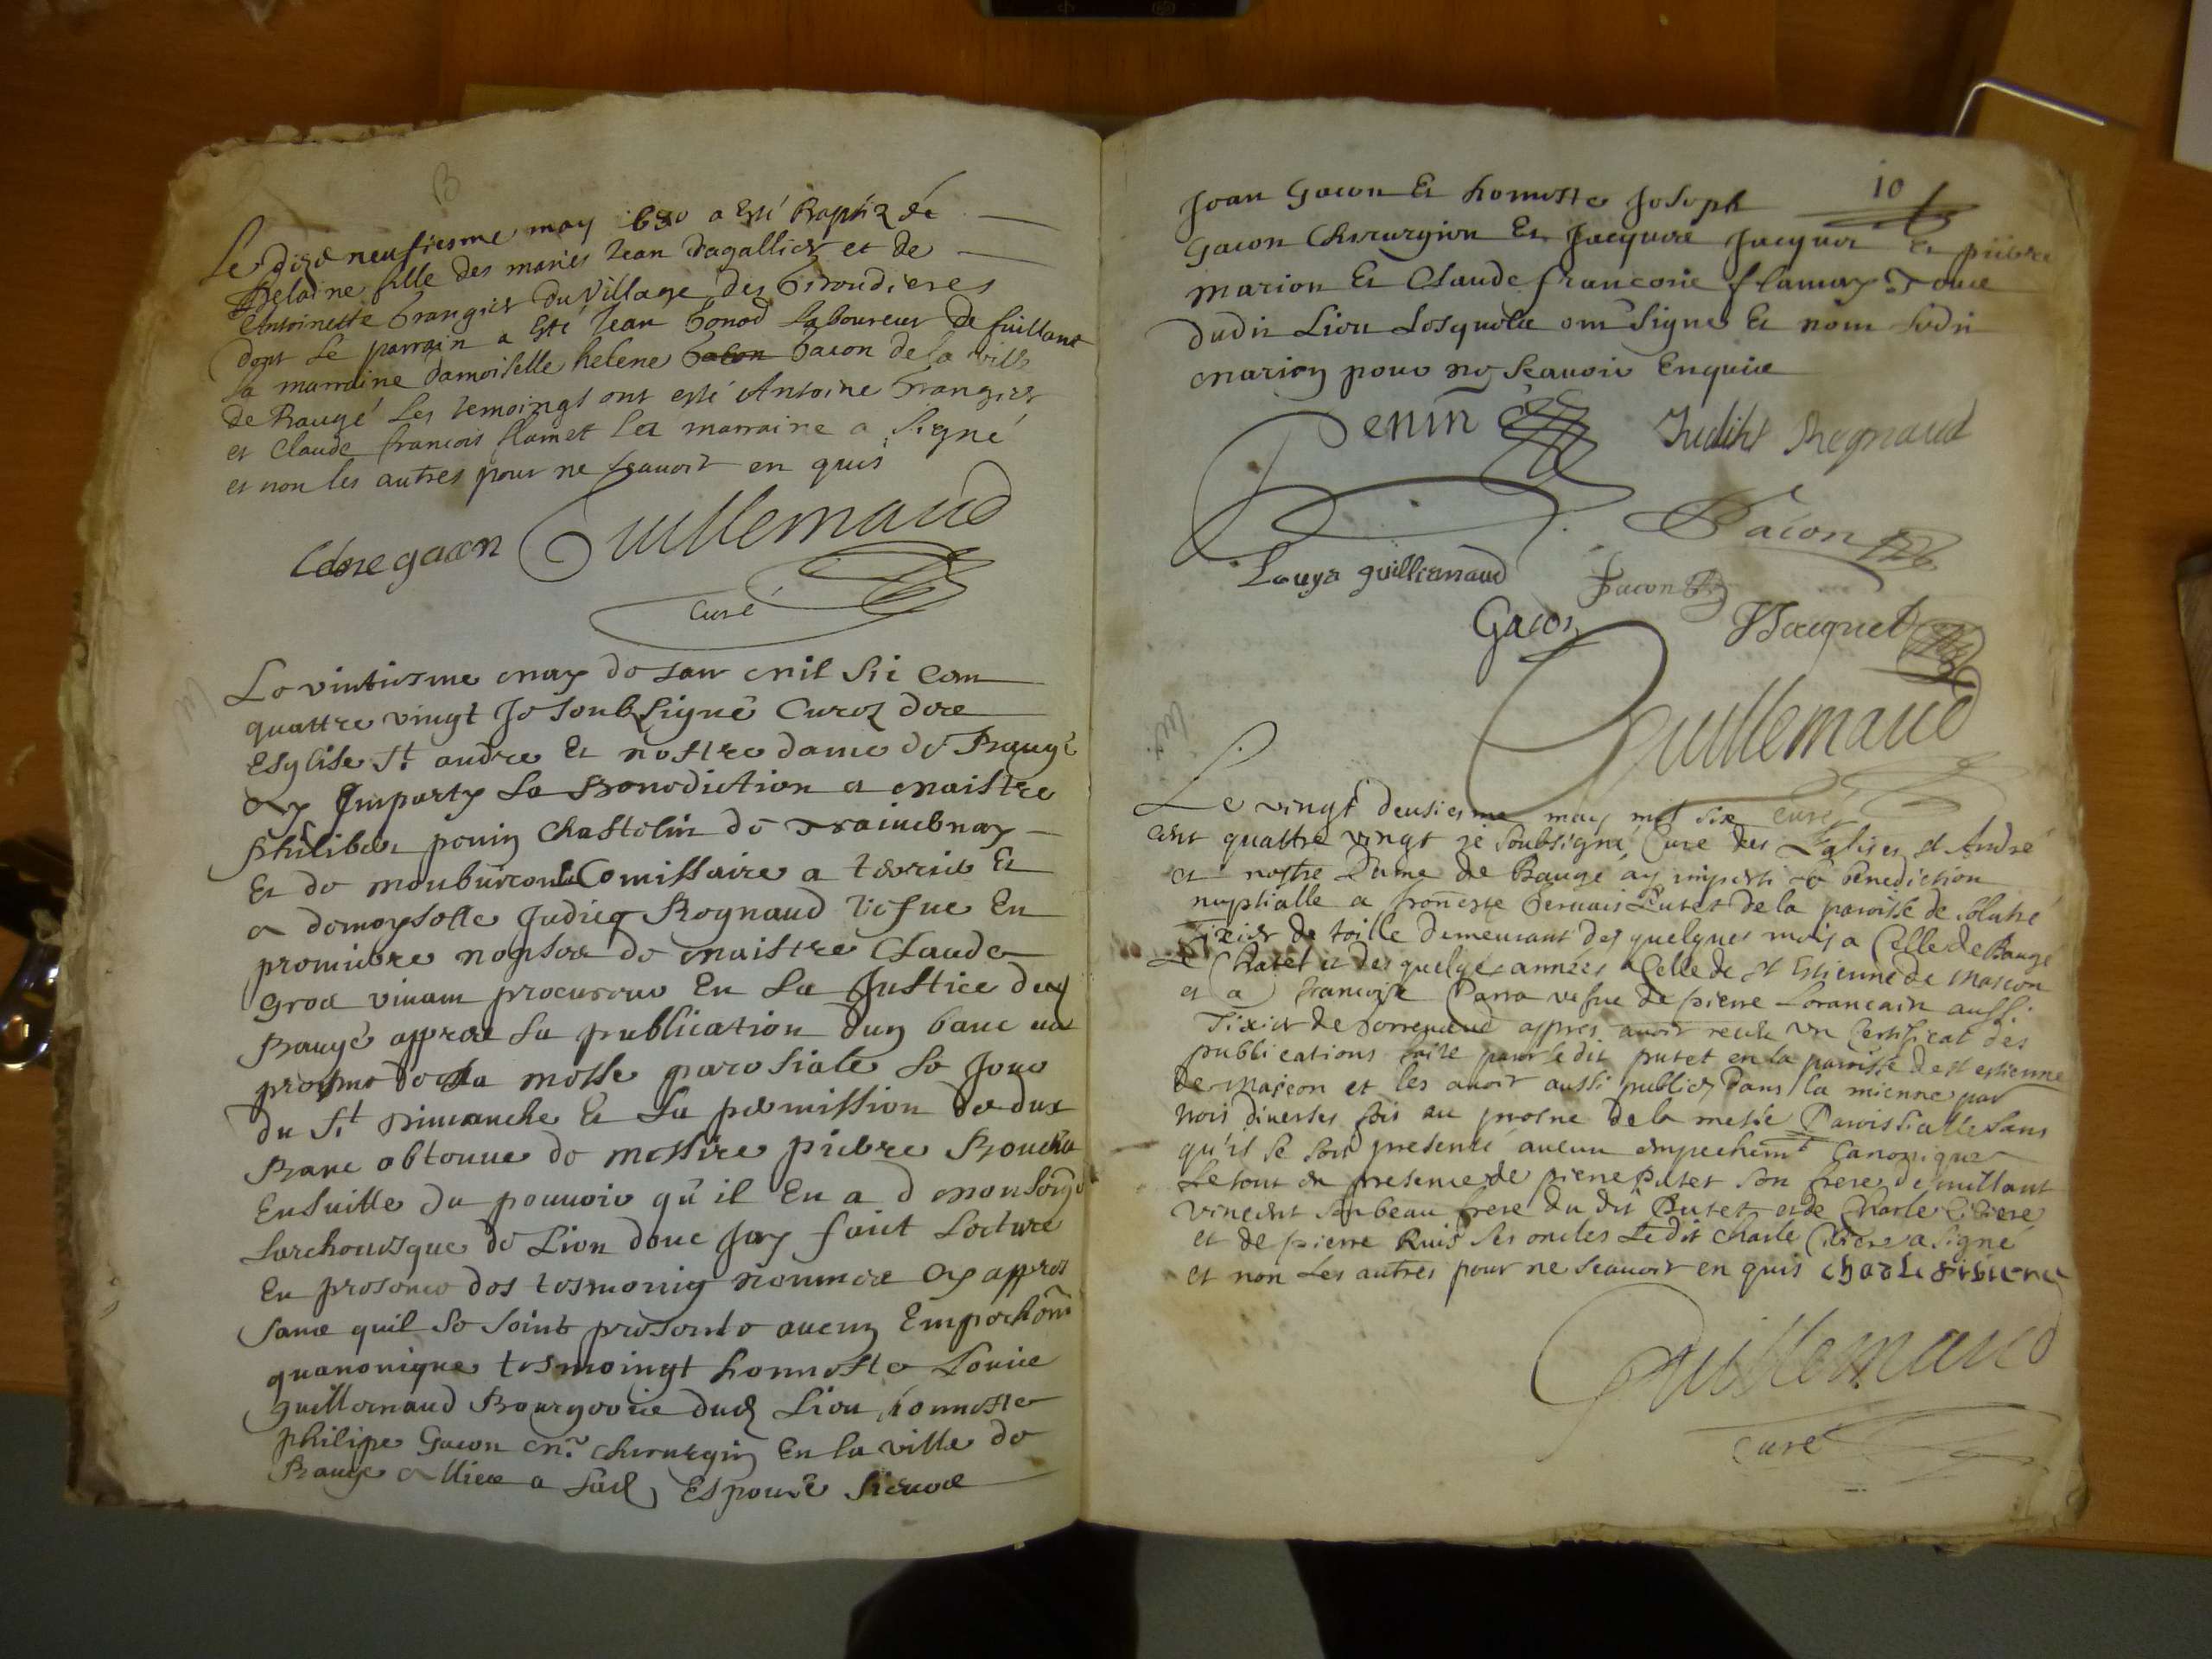 Le dixe neufiesme may 680 a esté Baptizée
helaine fille des mariés Jean dagallier et de
Antoinette brangier du village des
dont le parrain a esté Jean bonod laboureur de
la marraine damoiselle helene bacon de la ville
de Baugé les temoings ont esté Antoine brangier
et Claude francois flamet La marraine a signé
et non les autres pour ne scavoir en quis
Guillemaud
curé
Le vintiesme may de lan mil sic cen
quattre vingt Je soubsigné Curez des
Esglise st andre et nostre dame de Baugé
ay Imparty la Benediction a maistre
philiber Chastelin de
Et de Comissaire a terrier Et
a demoyselle Judicq Regnaud vefue En
premiere nopses de maistre Claude
Gros vivam procureur En la Justice de
Baugé appres la publication dun banc au
prosne de la messe parosiale le Jour
du st dimanche Et la permission de dux
Banc obtenue de messire pierre
Ensuitte du pouvoir qu'il En a d monseigr
Larchevesque de Lion donc Jay faict Lecture
En presence des tesmoing nommés Cy appres
sans quil se soint presente aucun Empechemt
quanonique tesmoingt honneste Louis
guillemaud Bourgoois dud Lieu honneste
philipe Gacon mr chirurgin En la ville de
Bauge a Espouse
Jean Gacon Et honneste Joseph 10
Gacon Chirurgien Et Jacques Jacques Et pierre
marion Et Claude francois flamay Tous
dudit Lieu Lesquels ont signes Et nom ledit
marion pour ny Scavoir Enquis
Penin Judiht Regnaud
Gacon
Louys guillemaud Jacon
Gacon Jacquet
Guillemaud
Le vingt deusiesme may mil six curé
cent quattre vingt je soubsigné Curé des Eglises st André
et nostre Dame de Baugé ay imparti la benediction
nuptialle a honneste Gervais Putet de la paroisse de Solutré
Tixier de toille demeurant des quelques mois a Celle de Baugé
Le Chatel et des quelques années a Celle de st Estienne de Mascon
et a Francoise Parra vefue de pierre Lorancain aussi
Tixier de appres avoir receu un Certificat des
publications faite par le dit putet en la paroisse de st estienne
de Mascon et les avoir aussi publiez Dans la mienne par
trois diverses fois au prosne de la messe Paroissialle sans
qu'il se soit presenté aucun empechemt Canonique
Le tout en presence de pierre Putet son frere de
Vincent son beau frere du dit Putet et de Charle
et de pierre Ruis ses oncles Le dit Charle a signé
et non Les autres pour ne scavoir en quis
Guillemaud
curé